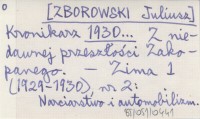 [ZBOROWSKI Juliusz]
Kronikarz 1930... Z nie-
dawnej przeszłości Zako-
panego. — Zima 1
(1929-1930), nr 2:
Narciarstwo i automobilizm.